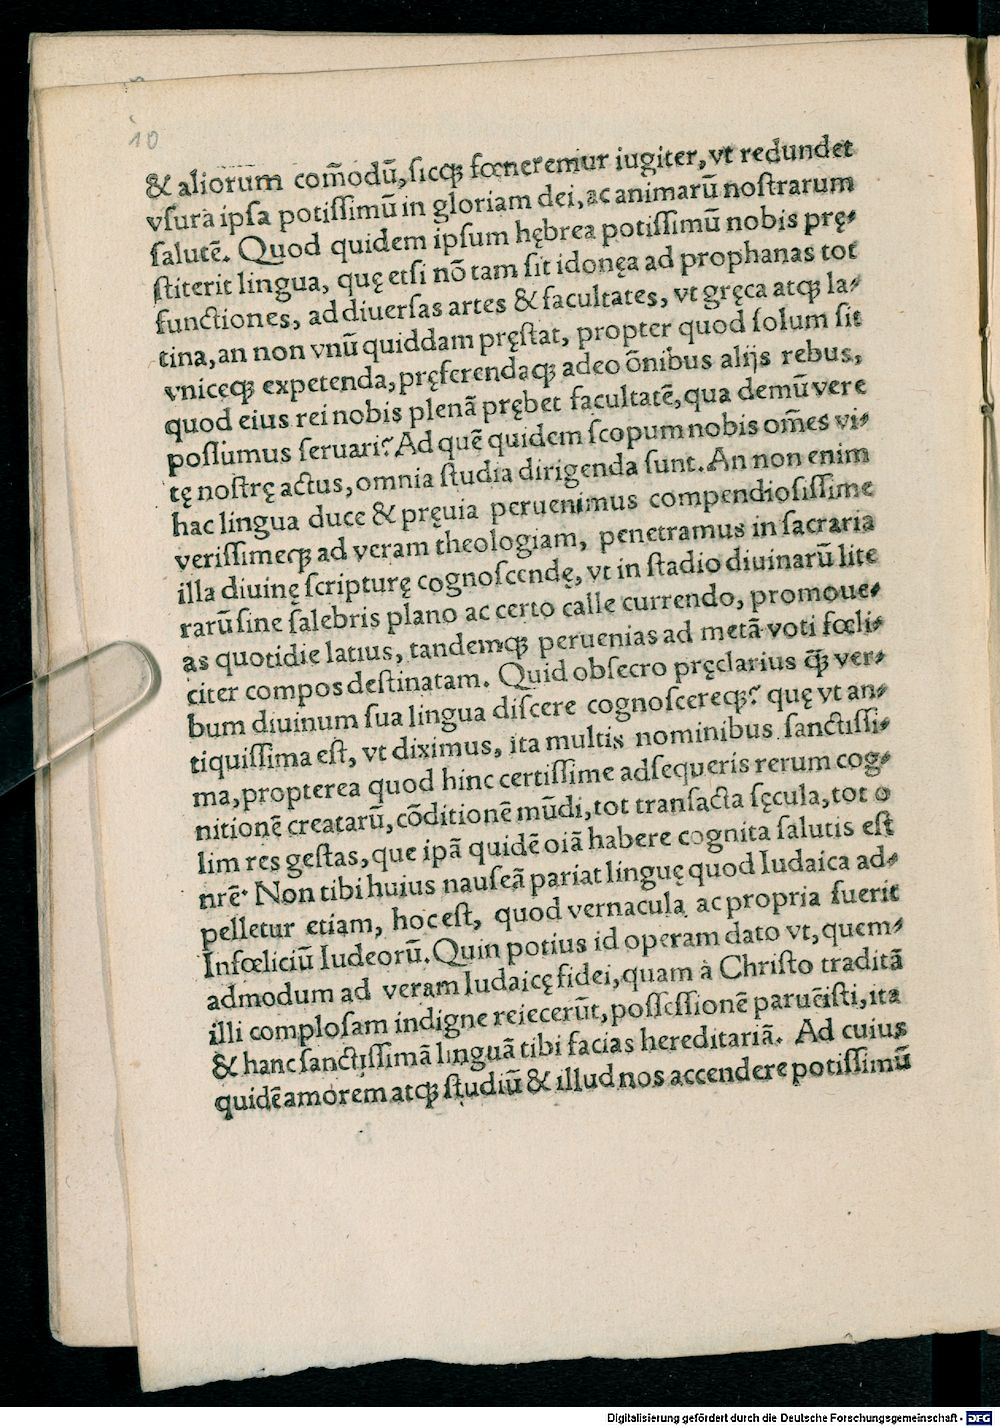 10
& aliorum com̃odũ, sicq̃ fœneremur iugiter, vt redundet
vsura ipsa potissimũ in gloriam dei, ac animarũ nostrarum
salutẽ. Quod quidem ipsum hębrea potissimũ nobis prę-
stiterit lingua, quę etsi nõ tam sit idonęa ad prophanas tot
functiones, ad diuersas artes & facultates, vt gręca atq̃ la-
tina, an non vnũ quiddam pręstat, propter quod solum sit
vniceq̃ expetenda, pręferendaq̃ adeo õnibus alijs rebus,
quod eius rei nobis plenã prębet facultatẽ, qua demũ vere
possumus seruari? Ad quẽ quidem scopum nobis om̃es vi-
tę nostrę actus, omnia studia dirigenda sunt. An non enim
hac lingua duce & pręuia peruenimus compendiosissime
verissimeq̃ ad veram theologiam, penetramus in sacraria
illa diuinę scripturę cognoscendę, vt in stadio diuinarũ lite
rarũ sine salebris plano ac certo calle currendo, promoue-
as quotidie latius, tandemq̃ peruenias ad metã voti fœli-
citer compos destinatam. Quid obsecro pręclarius q̃ ver-
bum diuinum sua lingua discere cognoscereq̃? quę vt an-
tiquissima est, vt diximus, ita multis nominibus sanctissi-
ma, propterea quod hinc certissime adsequeris rerum cog-
nitionẽ creatarũ, cõditionẽ mũdi, tot transacta sęcula, tot o
lim res gestas, que ipã quidẽ oiã habere cognita salutis est
nrẽ. Non tibi huius nauseã pariat linguę quod Iudaica ad-
pelletur etiam, hoc est, quod vernacula ac propria fuerit
Infœliciũ Iudeorũ. Quin potius id operam dato vt, quem-
admodum ad veram Iudaicę fidei, quam à Christo traditã
illi complosam indigne reiecerũt, possessionẽ paruẽisti, ita
& hanc sanctissimã linguã tibi facias hereditariã. Ad cuius
quidẽ amorem atq̃ studiũ & illud nos accendere potissimũ
Digitalisierung gefördert durch die Deutsche Forschungsgemeinschaft - DFG